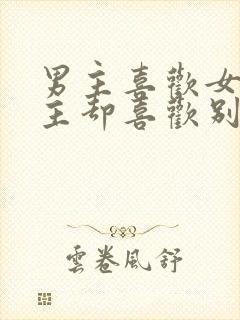 男主喜歡女
主却喜歡别
雲卷風舒